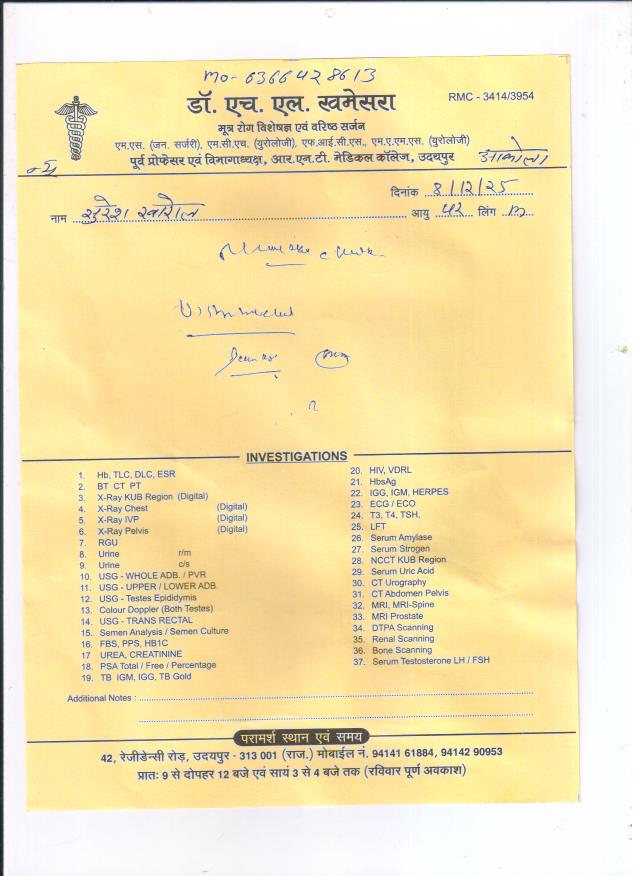 mo- 6366428613
डॉ. एच. एल. खमेसरा
RMC - 3414/3954
मूत्र रोग विशेषज्ञ एवं वरिष्ठ सर्जन
एम.एस. (जन. सर्जरी), एम.सी.एच. (युरोलोजी), एफ.आई.सी.एस., एम.ए.एम.एस. (युरोलोजी)
पूर्व प्रोफेसर एवं विभागाध्यक्ष, आर.एन.टी. मेडिकल कॉलेज, उदयपुर आकोला
दिनांक 8/12/25
नाम सुरेश खारोल आयु 42 लिंग m
INVESTIGATIONS
1. Hb, TLC, DLC, ESR
2. BT CT PT
3. X-Ray KUB Region (Digital)
4. X-Ray Chest (Digital)
5. X-Ray IVP (Digital)
6. X-Ray Pelvis (Digital)
7. RGU
8. Urine r/m
9. Urine c/s
10. USG - WHOLE ADB. / PVR
11. USG - UPPER / LOWER ADB.
12. USG - Testes Epididymis
13. Colour Doppler (Both Testes)
14. USG - TRANS RECTAL
15. Semen Analysis / Semen Culture
16. FBS, PPS, HB1C
17 UREA, CREATININE
18. PSA Total / Free / Percentage
19. TB IGM, IGG, TB Gold
20. HIV, VDRL
21. HbsAg
22. IGG, IGM, HERPES
23. ECG / ECO
24. T3, T4, TSH,
25. LFT
26. Serum Amylase
27. Serum Strogen
28. NCCT KUB Region
29. Serum Uric Acid
30. CT Urography
31. CT Abdomen Pelvis
32. MRI, MRI-Spine
33. MRI Prostate
34. DTPA Scanning
35. Renal Scanning
36. Bone Scanning
37. Serum Testosterone LH / FSH
Additional Notes :
परामर्श स्थान एवं समय
42, रेजीडेन्सी रोड़, उदयपुर - 313 001 (राज.) मोबाईल नं. 94141 61884, 94142 90953
प्रातः 9 से दोपहर 12 बजे एवं सायं 3 से 4 बजे तक (रविवार पूर्ण अवकाश)